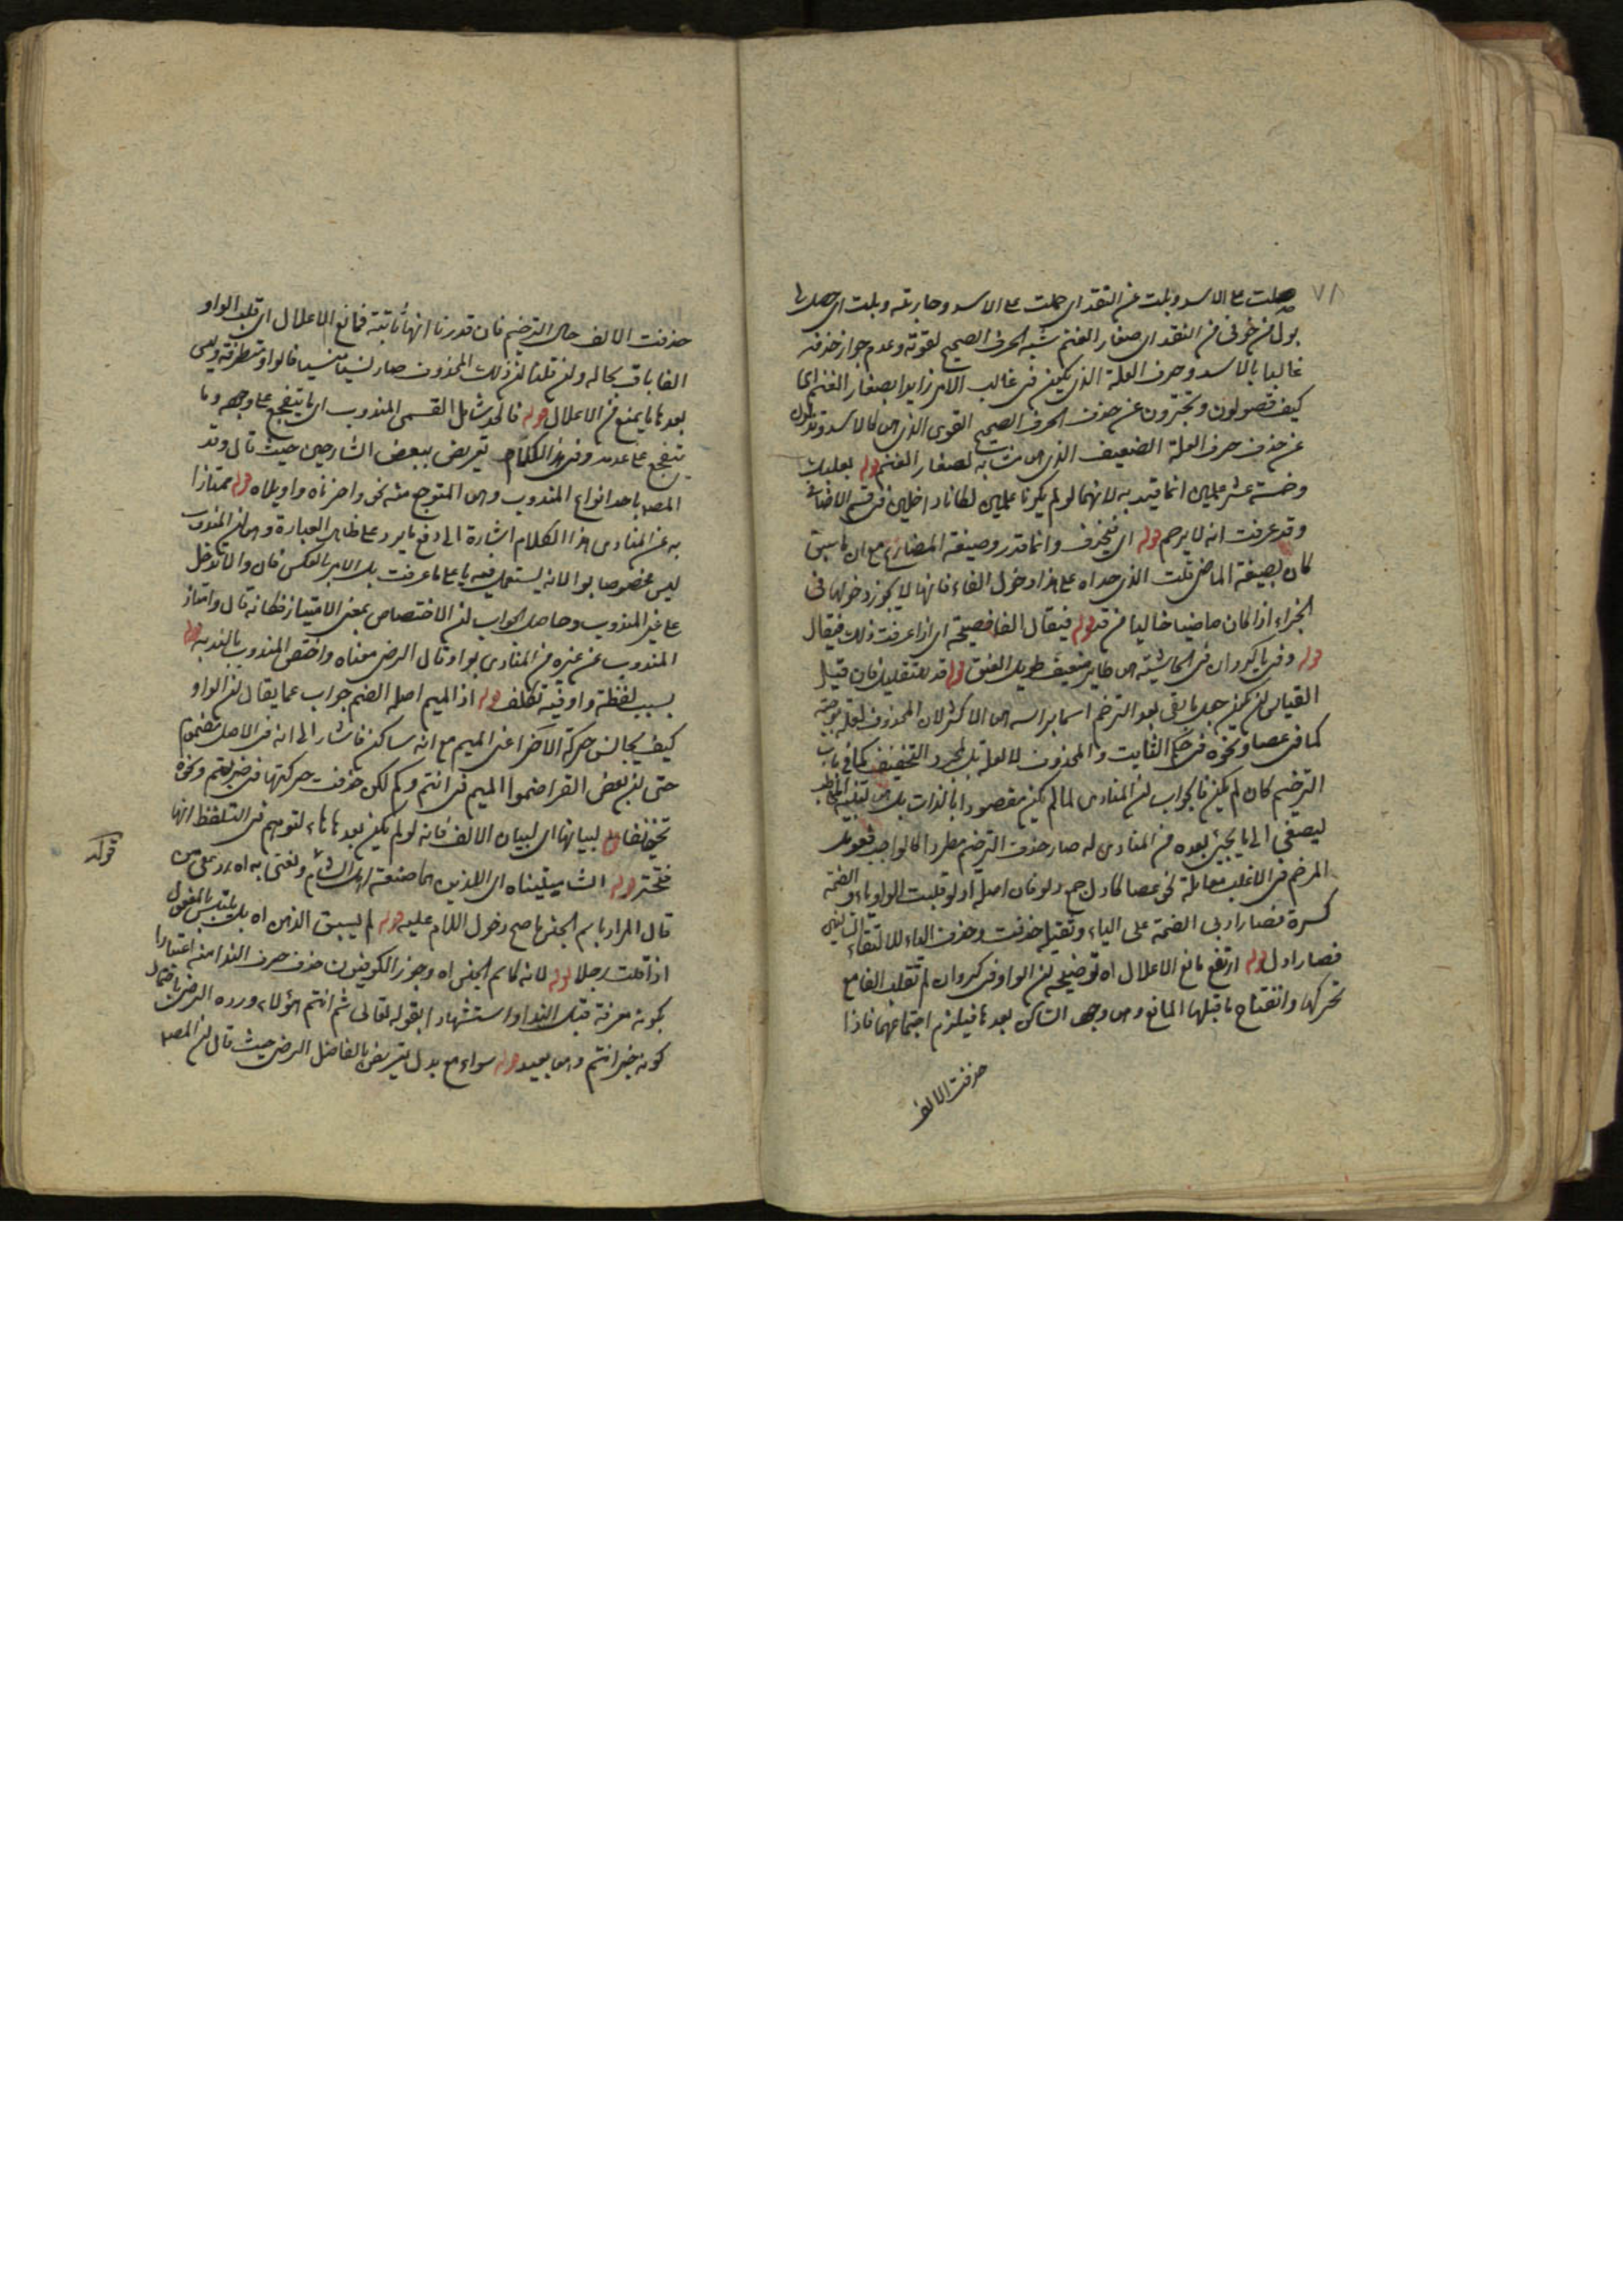 ٧٨
صلت على الاسد وبلت عن النقد اى حملت على الاسد وحاربته وبلت اى حصل لها
بول من خوفى من النقد اى صغار الغنم شبه الحرف الصحيح لقوته وعدم جواز حذفه
غالبا بالاسد وحرف العلة الذى يكون فى غالب الامر زايدا بصغار الغنم اى
كيف تصولون وتجترون عن حذف الحرف الصحيح القوى الذى هو كالاسد وتبولون
عن حذف حرف العلة الضعيف الذى هو مشابه لصغار الغنم قوله بعلبك
وخمسة عشر علمين انما قيد به لانهما لو لم يكونا علمين لكانا داخلين فى قسم الاضافة
وقد عرفت انه لا يرخم قوله اى فيحذف وانما قدر وصيغة المضارع مع ان ما سبق
كان بصيغة الماضى قلت الذى حداه على هذا دخول الفاء فانها لا يجوز دخولها فى
الجزاء اذا كان ماضيا خاليا من قد قوله فيقال الفا فصيحة اى اذا عرفت ذلك فيقال
قوله وفى يا كروان فى الحاشية هو طاير ضعيف طويل العنق قوله قد للتقليل فان قيل
القياس ان يكون جعل ما بقى بعد الترخيم اسما براسه هو الاكثر لان المحذوف لعلة موجبة
كما فى عصا ونحوه فى حكم الثابت والمحذوف لا لعلة بل لمجرد التخفيف كما فى باب
الترخيم كان لم يكن فالجواب ان المنادى لما لم يكن مقصودا بالذات بل هو لتنبيه المخاطب
ليصغى الى ما يجيئ بعده من المنادى له صار حذف الترخيم مطردا كالواجب فعومل
المرخم فى الاغلب معاملة نحو عصا كادل جمع دلو فان اصله ادلو قلبت الواو ياء والضمة
كسرة فصار ادلى الضمة على الياء ثقيلة حذفت وحذف الياء لالتقاء الساكنين
فصار ادل قوله ارتفع مانع الاعلال اه توضيحه ان الواو فى كروان لم تقلب الفا مع
تحركها وانفتاح ما قبلها المانع وهو وجود الساكن بعدها فيلزم اجتماعهما فاذا
حذفت الالف
حذفت الالف حال الترخيم فان قدرنا انها ثابتة فمانع الاعلال اى قلب الواو
الفا باق بحاله وان قلنا ان ذلك المحذوف صار نسيا منسيا فالواو متطرفة وليس
بعدها ما يمنع من الاعلال قوله فالحد شامل القسمى المندوب اى ما يتفجع على وجوده وما
يتفجع على عدمه وفى هذا الكلام تعريض ببعض الشارحين حيث قال وقد
المصـ باحد انواع المندوب وهو المتوجع منه نحو واحزناه واويلاه قوله ممتازا
به عن المنادى هذا الكلام اشارة الى دفع ما يرد على ظاهر العبارة وهو ان المندوب
ليس مخصوصا بوا لانه يستعمل فيه يا على ما عرفت بل الامر بالعكس فان وا لا تدخل
على غير المندوب وحاصل الجواب ان الاختصاص بمعنى الامتياز فكانه قال وامتاز
المندوب عن غيره من المنادى بوا وقال الرضى معناه واختص المندوب بالندبه قوله
بسبب لفظة وا وفيه تكلف قوله اذ الميم اصله الضم جواب عما يقال ان الواو
كيف يجانس حركة الآخر اعنى الميم مع انه ساكن فاشار الى انه فى الاصل مضموم
حتى ان بعض القرا ضموا الميم فى انتم وكم لكن حذفت حركتها فى ضربتم ونحوه
تخفيفا قوله لبيانها اى لبيان الالف فانه لو لم يكن بعدها هاء لتوهم فى التلفظ انها
فتحة قوله الشاميتيناه اى اللذين هما صنعة اهل الشام ونعتى به اه رد على من
قال المراد باسم الجنس ما صح دخول اللام عليه قوله لم يسبق الذهن اه بل يلتبس بالمفعول
اذا قلت رجلا قوله لانه كاسم الجنس اه وجوز الكوفيون حذف حرف الندا منه اعتبارا
بكونه معرفة قبل الندا واستشهدا بقوله تعالى ثم انتم هؤلاء ورده الرضى باحتمال
كونه خبر انتم وهو بعيد قوله سواء مع بدل تعريض بالفاضل الرضى حيث قال ان المصـ
قوله